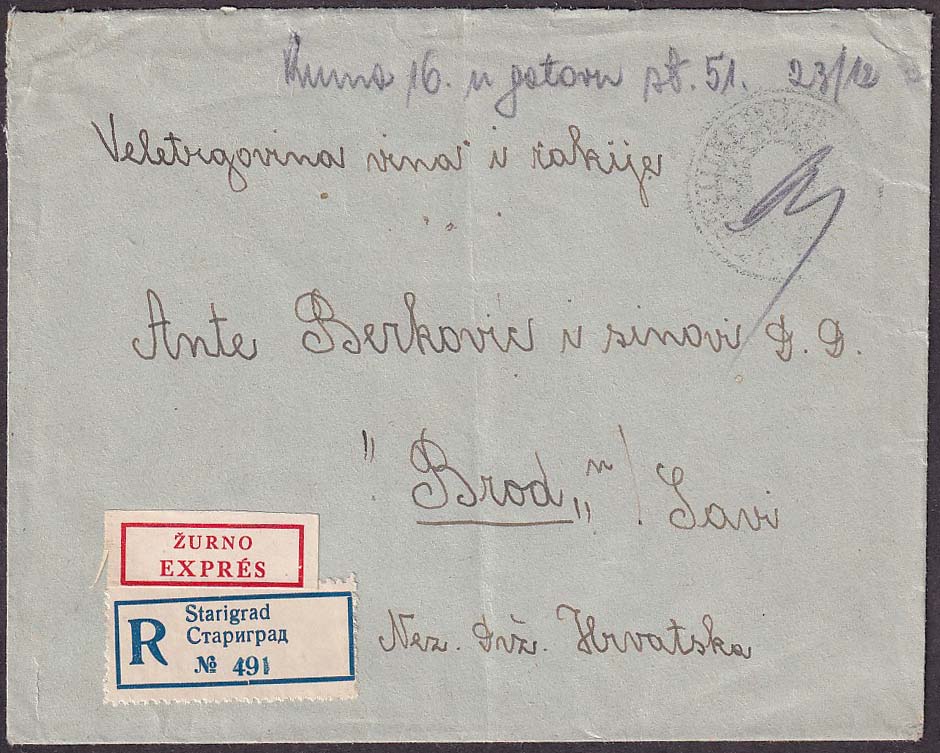 Ruma 16. u gotovu st. 51. 23/12
Veletrgovina vina i rakije
Ante Berković i sinovi D. D.
"Brod„ n/ Savi
ŽURNO
EXPRÉS
R
Starigrad
Стариград
№ 491
Nez. Drž. Hrvatska